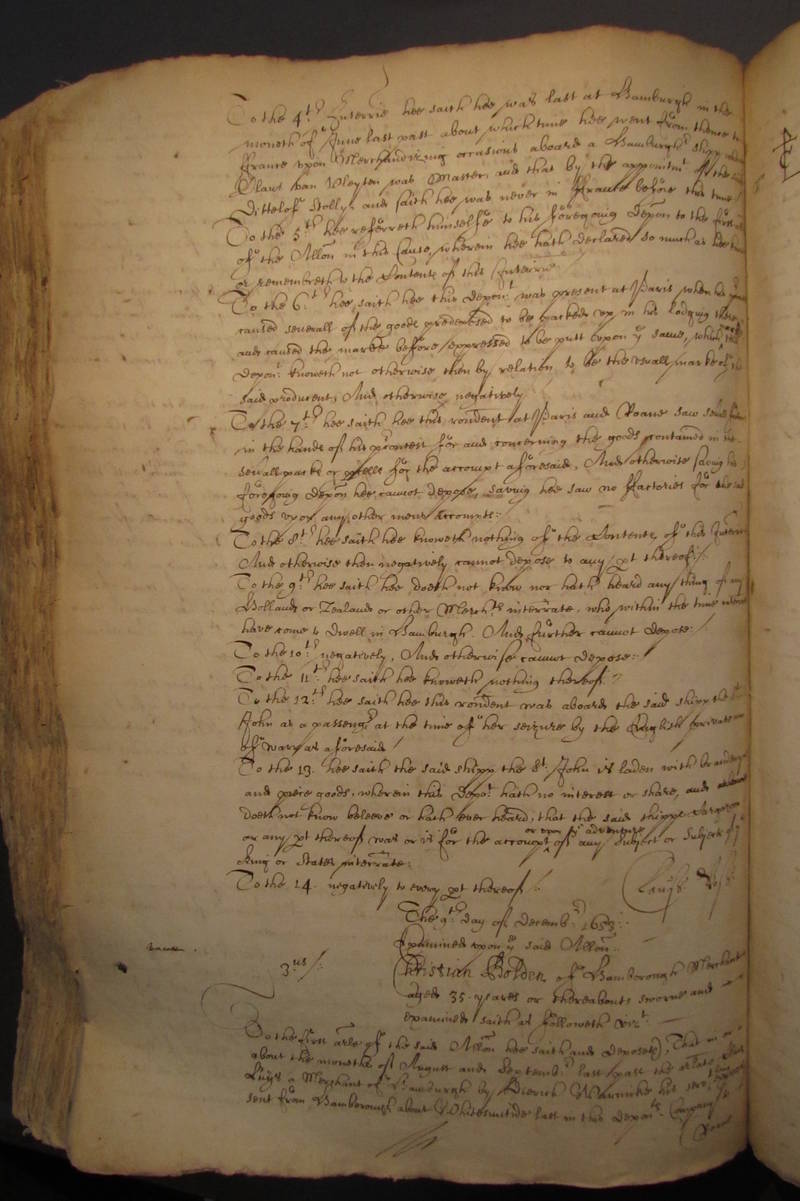 To the 4th Interrie hee saith hee was last at Hamburgh in the
moneth of June last past about which time hee went from thence to
ffrance upon Merchandizing occasions aboard a Hamburgh shipp
Claus van was Master, and that by the appointmt of the
Dittelof and saith hee was never in ffrance before that time
To the 5th hee referreth himselfe to his foregoing depon to the first
of the Allon in this Cause, wherein hee hath declared so much as hee
or remembreth to the Contents of this Interrie
To the 6th hee saith hee this depont was present at Paris when
caused severall of the goods predeposed to be packed up in his lodging there
and caused the marke before expressed to be putt upon ye same, which this
depont knoweth not otherwise then by relation to be the usuall marke of the
said producent, And otherwise negatively
To the 7th hee saith hee this rendent at Paris and Roane saw
in the hands of his for and concerning the goods contained in the
severall packs or for the accompt aforesaid, And otherwise saving his
foregoing depon hee cannot depose, saving hee saw no ffactories for the said
goods upon any other mens accompts:
To the 8th hee saith hee knoweth nothing of the Contents of this Interrie
And otherwise then negatively cannot depose to any pt thereof:/
To the 9th hee saith hee doeth not know nor hath heard any thing of any
Hollands or Zealands or other Merchts interrate, who within the time
have come to dwell in Hamburgh. And further cannot depose:/
To the 10th negatively, And otherwise cannot depose:/
To the 11th hee saith hee knoweth nothing thereof:/
To the 12th hee saith hee this rendent was aboard the said shipp the St
John as a passengr at the time of her seizure by the English private
of warr as aforesaid/
To the 13. hee saith the said shipp the St John is laden with brandy
and peice goods, wherein this depont hath no interest or share, and
doeth not know beleeve or hath ever heard, that the said shippe
or upon ye adventure
or any pt thereof was or is for the accompt of any Subject or Subjects of ye
King or States interrate:
To the 14. negatively to every pt thereof:/
The 9th day of Decembr. 1653:
Examined upon ye said Allon.
3us/.
Christian Bolden of Hamborough Merchant
aged 35. yeares or thereabouts sworne and
examined saith as followeth vizt.
To the first arle of the said Allon hee saith and deposeth, That in or
about the moneths of August and Septembr last past the arlate
Luijs a Merchant of Hamburgh by Dierick his
sent from Hamborough about Whitsuntide last in this deponts Company